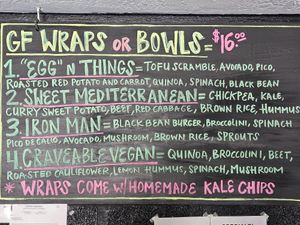 GF WRAPS OR BOWLS = $16.00
1. "EGG" N THINGS = TOFU SCRAMBLE, AVOCADO, PICO,
ROASTED RED POTATO AND CARROT, QUINOA, SPINACH, BLACK BEAN
2. SWEET MEDITERRANEAN = CHICKPEA, KALE,
CURRY SWEET POTATO, BEET, RED CABBAGE, BROWN RICE, HUMMUS
3. IRON MAN = BLACK BEAN BURGER, BROCCOLINI, SPINACH
PICO DE GALLO, AVOCADO, MUSHROOM, BROWN RICE, SPROUTS
4. CRAVEABLE VEGAN = QUINOA, BROCCOLINI, BEET,
ROASTED CAULIFLOWER, LEMON HUMMUS, SPINACH, MUSHROOM
* WRAPS COME W/ HOMEMADE KALE CHIPS